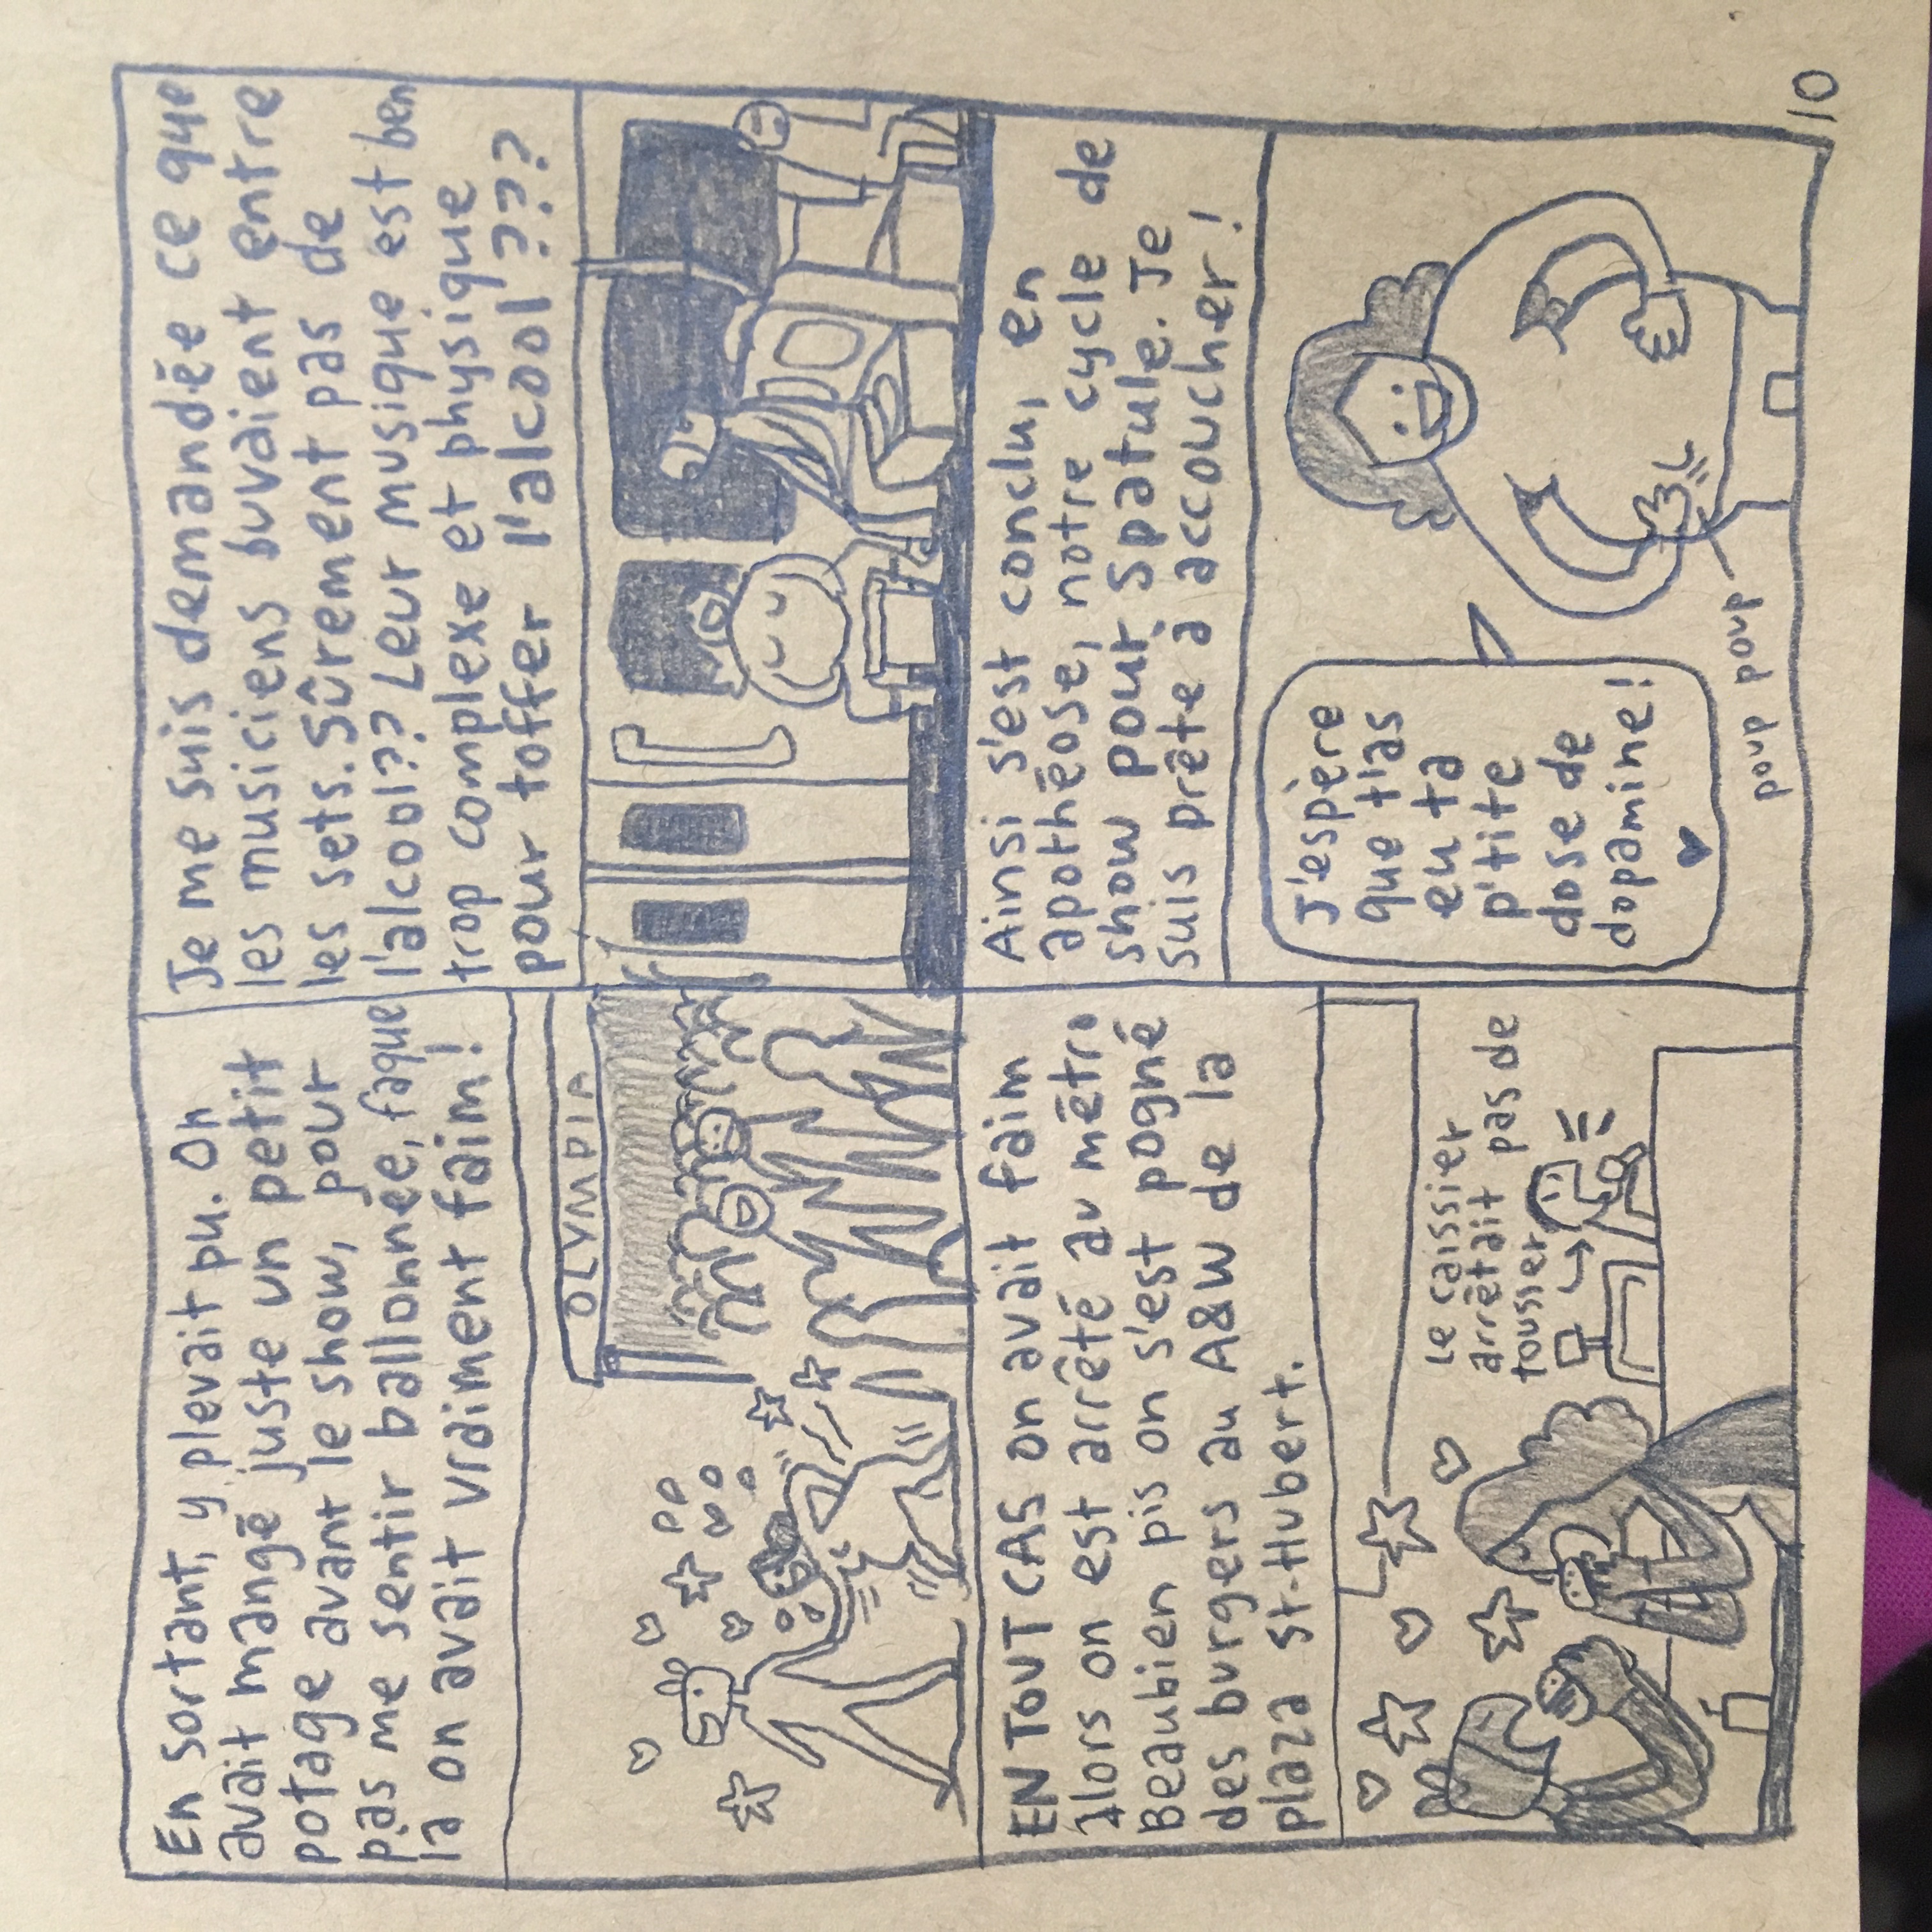 En sortant, y plevait pu. On
avait mangé juste un petit
potage avant le show, pour
pas me sentir ballonnée, faque
là on avait vraiment faim!
OLYMPIA
Je me suis demandée ce que
les musiciens buvaient entre
les sets. Sûrement pas de
l'alcool?? Leur musique est ben
trop complexe et physique
pour toffer l'alcool???
EN TOUT CAS on avait faim
alors on est arrêté au métro
Beaubien pis on s'est pogné
des burgers au A&W de la
plaza St-Hubert.
Le caissier
arrêtait pas de
tousser
Ainsi s'est conclu, en
apothéose, notre cycle de
show pour Spatule. Je
suis prête à accoucher!
J'espère
que t'as
eu ta
p'tite
dose de
dopamine!
poup poup
10